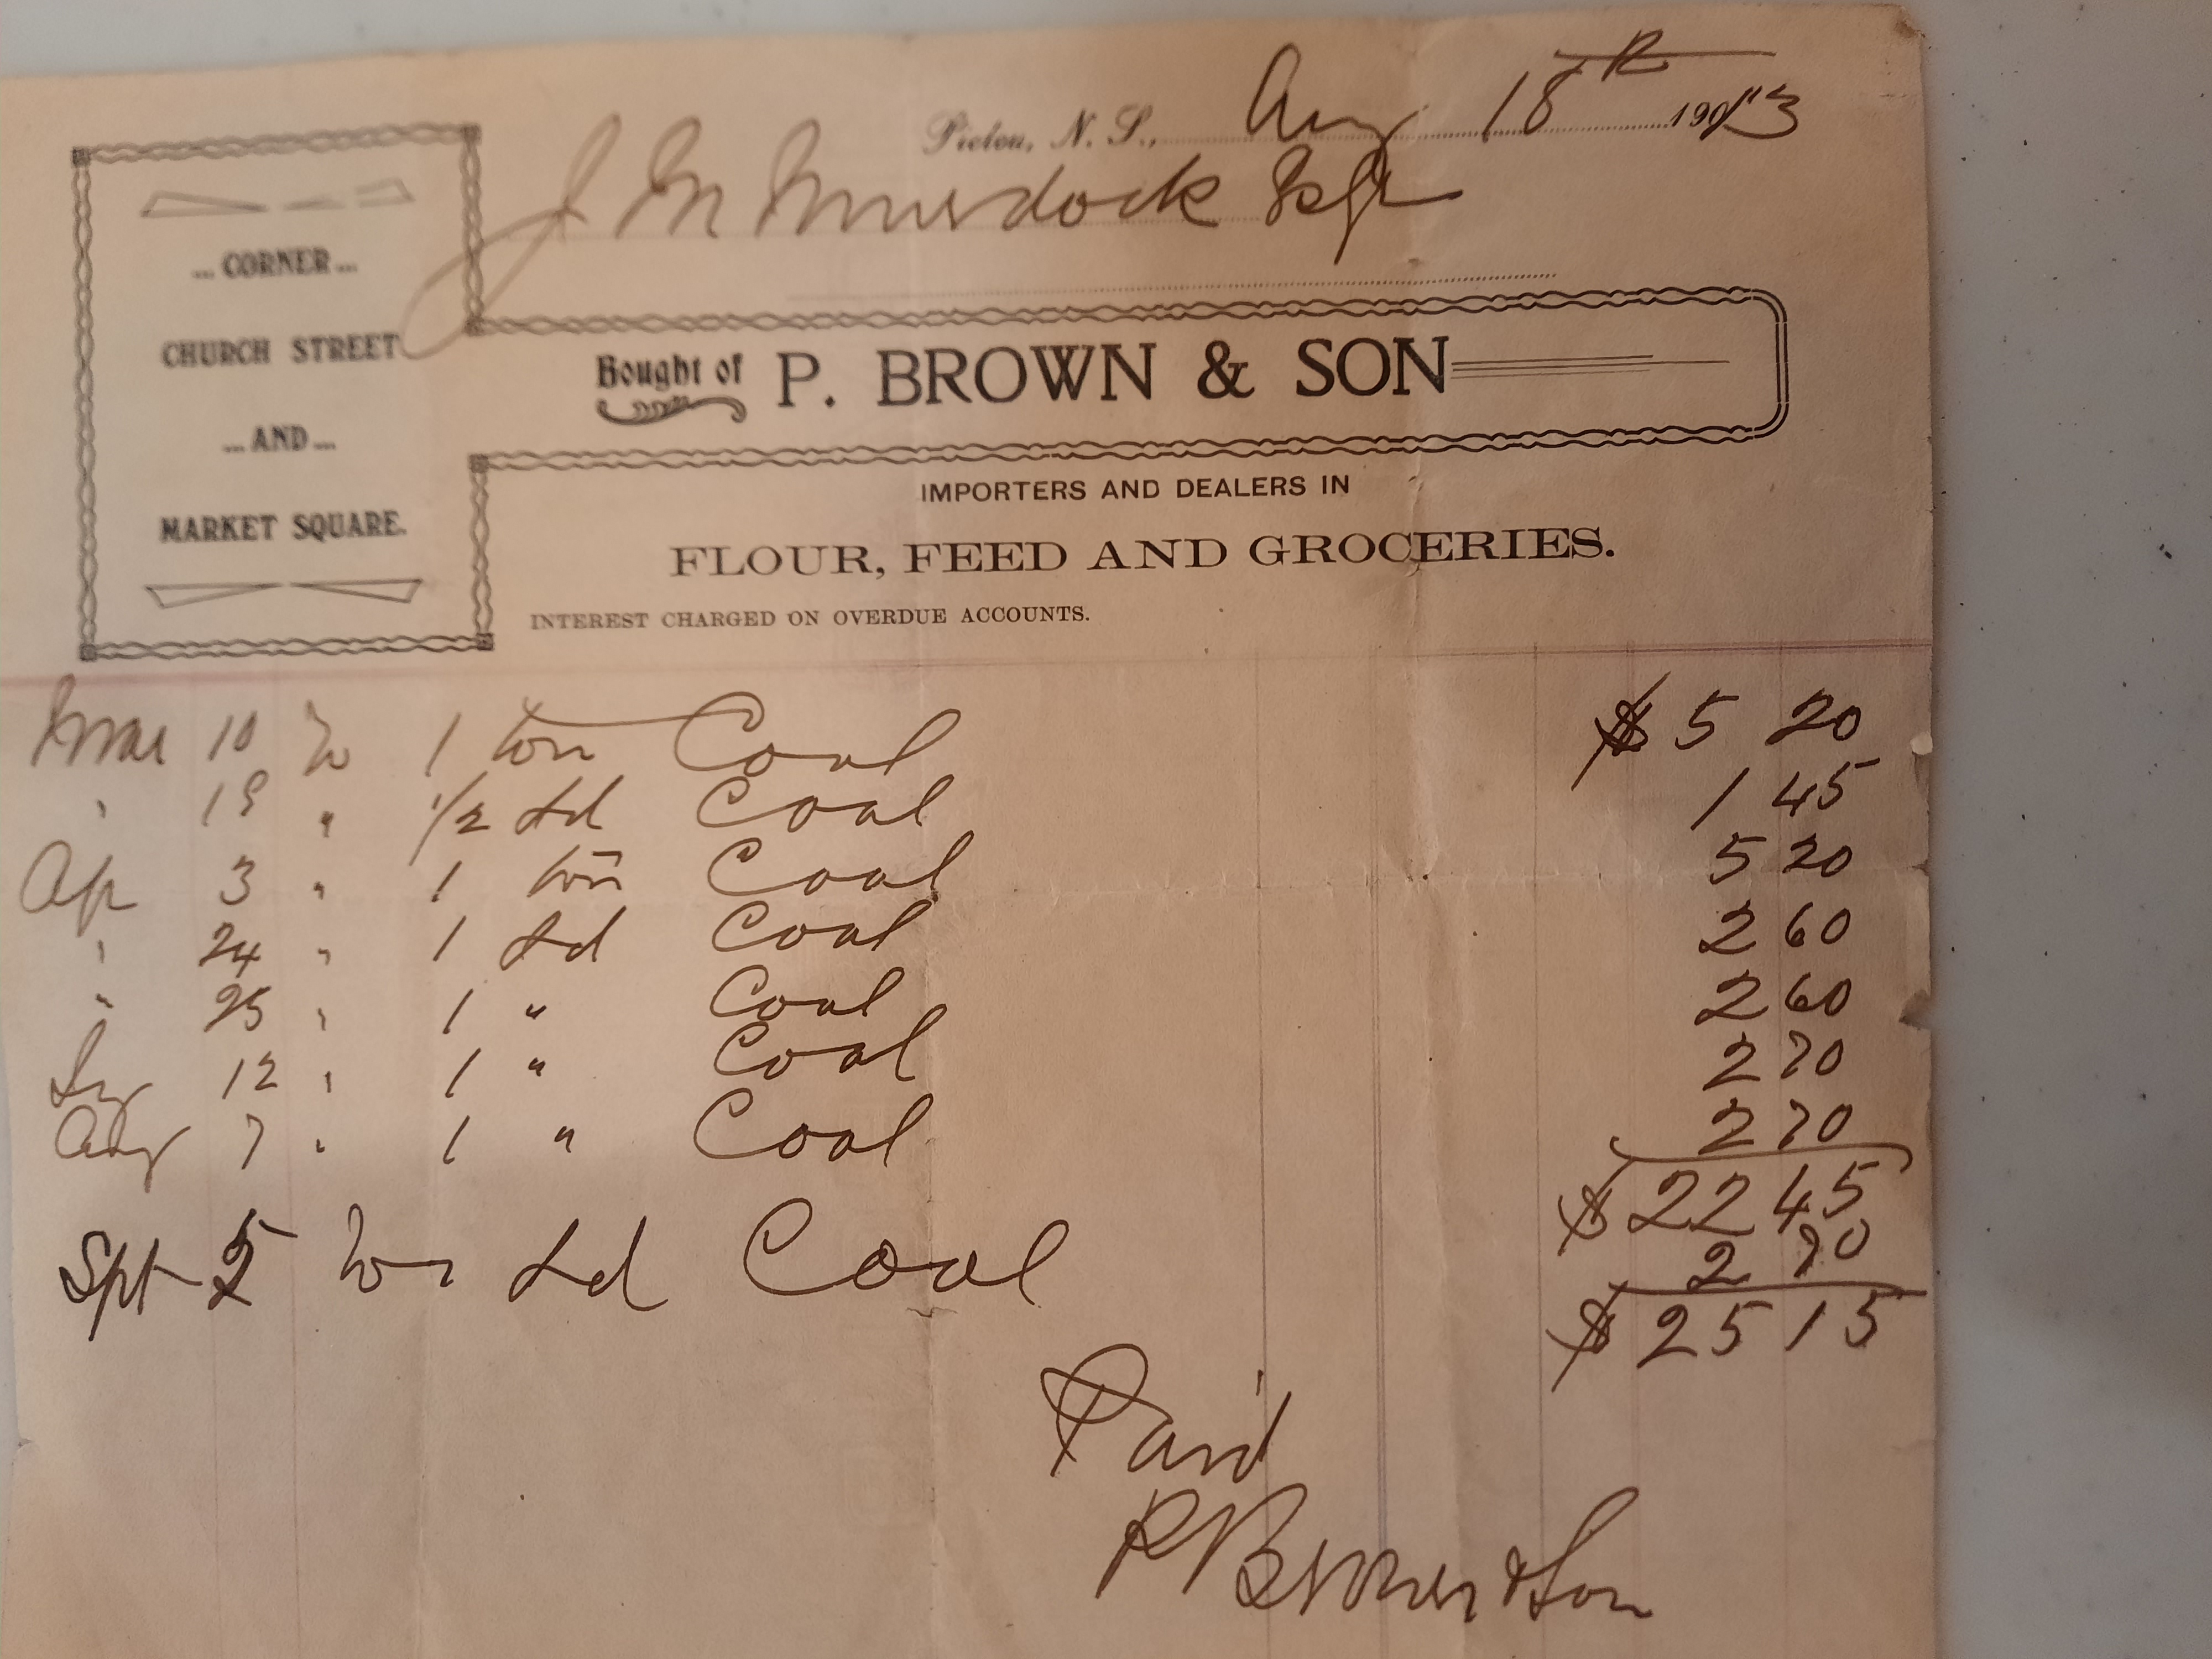 Pictou, N. S., Aug 18th 1913
J M Murdock Esqr
... CORNER ...
CHURCH STREET
... AND ...
MARKET SQUARE.
Bought of P. BROWN & SON
IMPORTERS AND DEALERS IN
FLOUR, FEED AND GROCERIES.
INTEREST CHARGED ON OVERDUE ACCOUNTS.
Mar 10 To 1 ton Coal $ 5 20
" 19 " 1/2 Ld Coal 1 45
Ap 3 " 1 ton Coal 5 20
" 24 " 1 Ld Coal 2 60
" 25 " 1 " Coal 2 60
12 " 1 " Coal 2 70
Aug 7 " 1 " Coal 2 70
$ 22 45
Spt 5 To 1 Ld Coal 2 70
$ 25 15
Paid
P Brown & Son